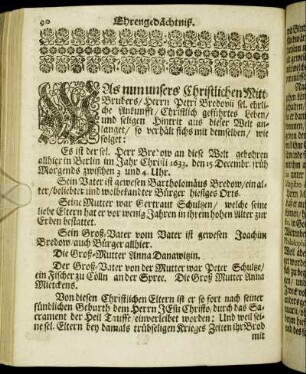 90 Ehrengedächtniß.
WAs nun unsers Christlichen Mitt-
Bruders/ Herrn Petri Bredovii sel. ehrli-
che Ankunfft/ Christlich geführtes Leben/
und seligen Hintrit aus dieser Welt an-
langet/ so verhält sichs mit demselben/ wie
folget:
Es ist der sel. Herr Bredow an diese Welt gebohren
allhier in Berlin im Jahr Christi 1633. den 15 Decembr. früh
Morgends zwischen 3 und 4. Uhr.
Sein Vater ist gewesen Bartholomäus Bredow/ ein al-
ter/ beliebter und wolbekandter Bürger hiesiges Orts.
Seine Mutter war Gertraut Schultzen/ welche seine
liebe Eltern hat er vor wenig Jahren in ihrem hohen Alter zur
Erden bestattet.
Sein Groß-Vater vom Vater ist gewesen Joachim
Bredow auch Bürger allhier.
Die Groß-Mutter Anna Danawitzin.
Der Groß-Vater von der Mutter war Peter Schultze/
ein Fischer zu Cölln an der Spree. Die Groß Mutter Anna
Mietckens.
Von diesen Christlichen Eltern ist er so fort nach seiner
sündlichen Geburth dem Herrn JEsu Christo durch das Sa-
crament der Heil Tauffe/ einverleibet worden: Und weil sei-
ne sel. Eltern bey damals trübseligen Krieges Zeiten ihr Brod
mit